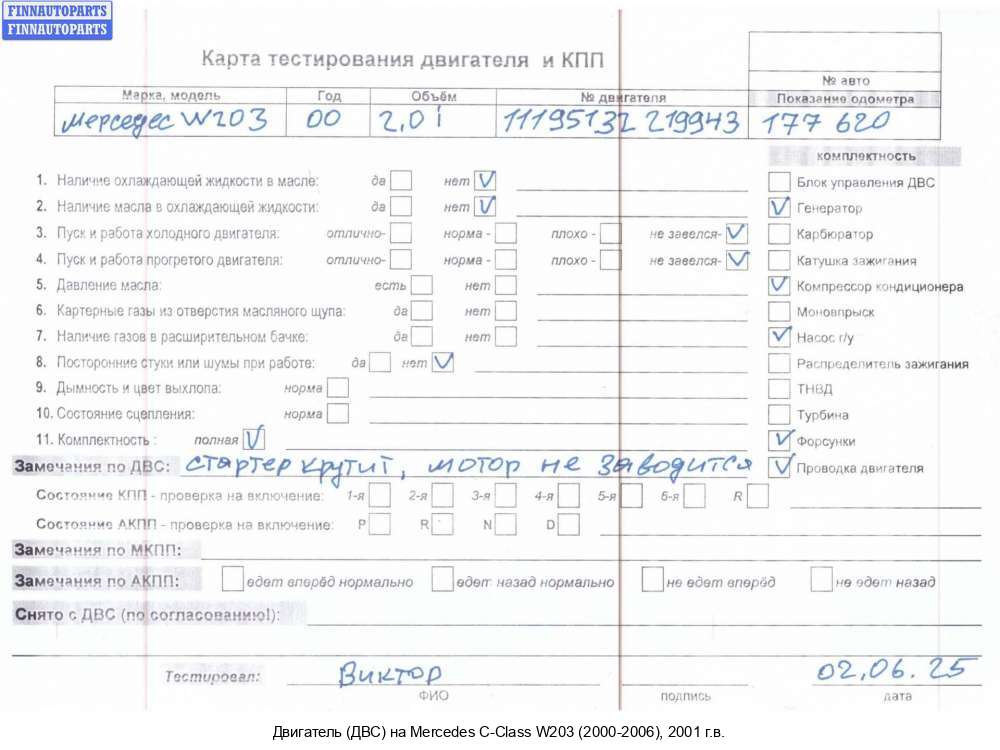 FINNAUTOPARTS
FINNAUTOPARTS
Карта тестирования двигателя и КПП
№ авто
Марка, модель Год Объём № двигателя Показание одометра
Мерседес W203 00 2,0i 11195132219943 177 620
комплектность
1. Наличие охлаждающей жидкости в масле: да нет V Блок управления ДВС
2. Наличие масла в охлаждающей жидкости: да нет V V Генератор
3. Пуск и работа холодного двигателя: отлично- норма - плохо - не завелся- V Карбюратор
4. Пуск и работа прогретого двигателя: отлично- норма - плохо - не завелся- V Катушка зажигания
5. Давление масла: есть нет V Компрессор кондиционера
6. Картерные газы из отверстия масляного щупа: да нет Моновпрыск
7. Наличие газов в расширительном бачке: да нет V Насос г/у
8. Посторонние стуки или шумы при работе: да нет V Распределитель зажигания
9. Дымность и цвет выхлопа: норма ТНВД
10. Состояние сцепления: норма Турбина
11. Комплектность : полная V V Форсунки
Замечания по ДВС: стартер крутит, мотор не заводится V Проводка двигателя
Состояние КПП - проверка на включение: 1-я 2-я 3-я 4-я 5-я 6-я R
Состояние АКПП - проверка на включение: P R N D
Замечания по МКПП:
Замечания по АКПП: едет вперёд нормально едет назад нормально не едет вперёд не едет назад
Снято с ДВС (по согласованию!):
Тестировал: Виктор 02.06.25
ФИО подпись дата
Двигатель (ДВС) на Mercedes C-Class W203 (2000-2006), 2001 г.в.